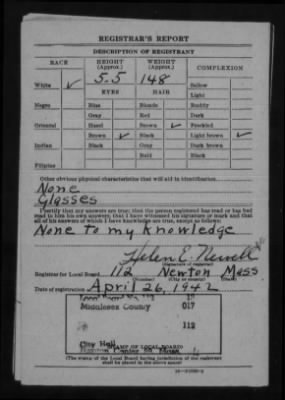 REGISTRAR'S REPORT
DESCRIPTION OF REGISTRANT
RACE HEIGHT (Approx.) WEIGHT (Approx.) COMPLEXION
5.5 148
White ✓ Sallow
EYES HAIR Light
Negro Blue Blonde Ruddy
Gray Red Dark
Oriental Hazel Brown ✓ Freckled
Brown ✓ Black Light brown ✓
Indian Black Gray Dark brown
Bald Black
Filipino
Other obvious physical characteristics that will aid in identification
None
Glasses
I certify that my answers are true; that the person registered has read or has had
read to him his own answers; that I have witnessed his signature or mark and that
all of his answers of which I have knowledge are true, except as follows:
None to my knowledge
Helen E. Newell
(Signature of registrar)
Registrar for Local Board 112 Newton Mass
(Number) (City or county) (State)
Date of registration April 26, 1942
Middlesex County 017
112
City Hall
STAMP OF LOCAL BOARD
(The stamp of the Local Board having jurisdiction of the registrant
shall be placed in the above space)